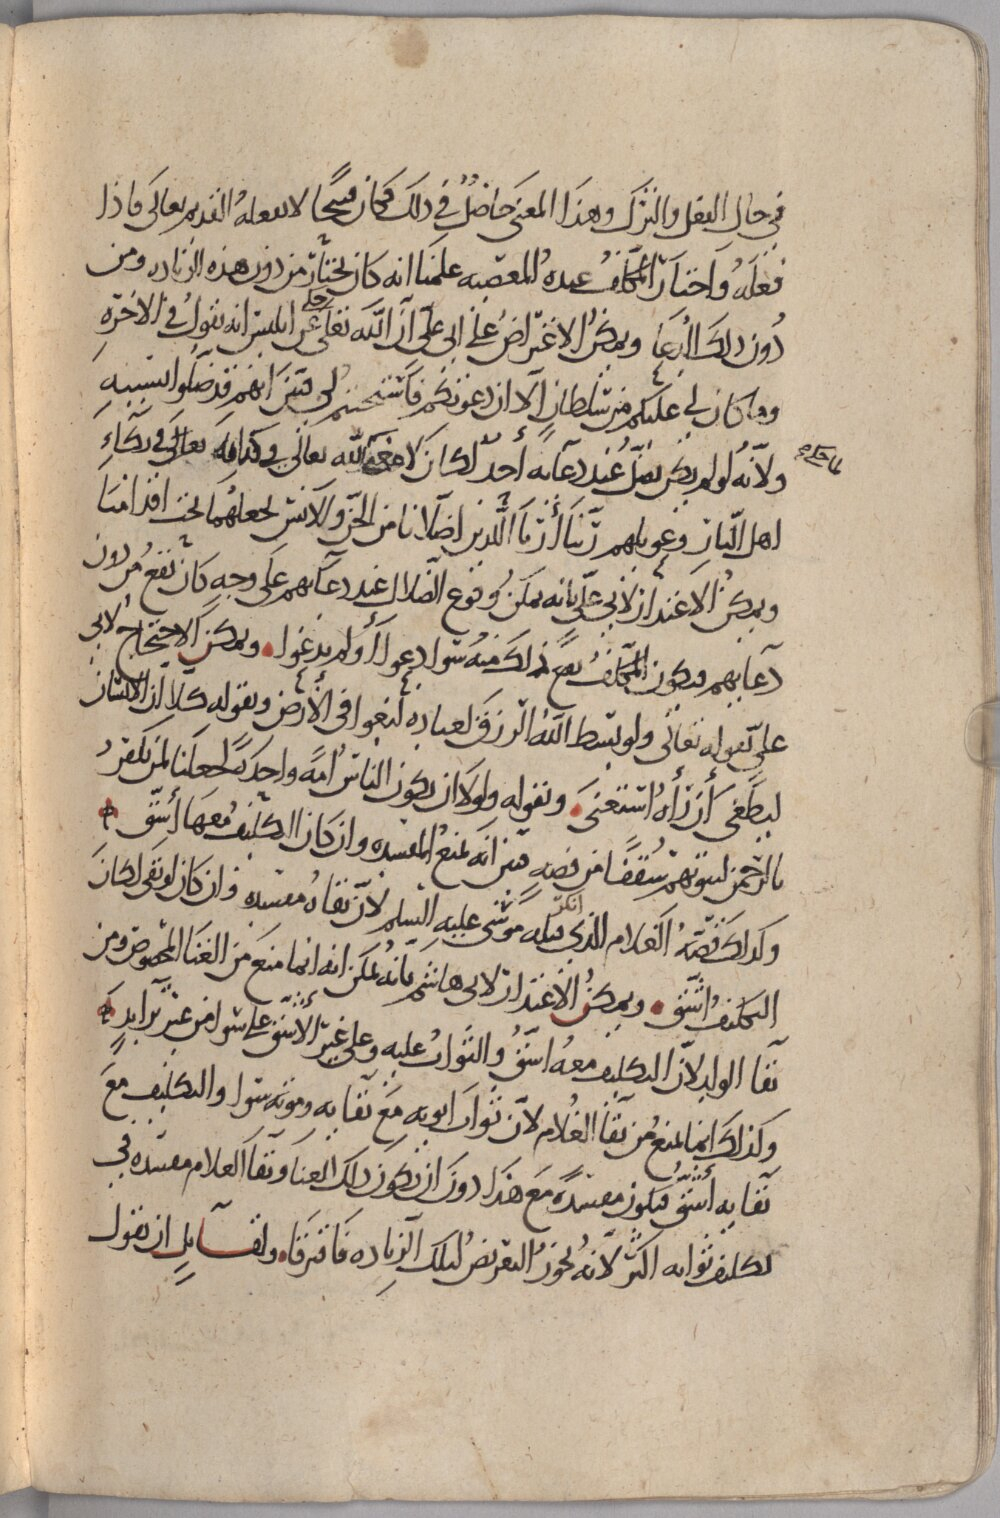 في حال الفعل والترك وهذا المعنى حاصل في ذلك فكان قبيحا لا يفعله القديم تعالى فاذا
فعله واختار المكلف عبده المعصيه علمنا انه كان يختار من دون هذه الزياده ومن
دون ذلك الدعا ويمكن الاعتراض على ابي علي ان الله تعالى حكى عن ابليس انه يقول في الاخره
وما كان لي عليكم من سلطان الا ان دعوتكم فاستجبتم لي فبين انهم قد ضلوا بسببه
ولانه لو لم يكن يضل عند دعائه احد لكان لا معنى الله تعالى وحكايته تعالى في بكاء
اهل النار وعويلهم ربنا ارنا اللذين اضلانا من الجن والانس نجعلهما تحت اقدامنا
ويمكن الاعتذار لابي علي بانه يمكن وقوع الضلال عند دعائهم على وجه كان يقع من دون
دعائهم فيكون المكلف يقع ذلك منه سوا دعوا او لم يدعوا ويمكن الاحتجاج لابي
علي بقوله تعالى ولو بسط الله الرزق لعباده لبغوا في الارض وبقوله كلا ان الانسان
ليطغى ان رآه استغنى وبقوله ولولا ان يكون الناس امة واحدة لجعلنا لمن يكفر
بالرحمن لبيوتهم سقفا من فضه فبين انه يمنع المفسده وان كان التكليف معها اشق
وكذلك قصة الغلام الذي قتله انكر موسى عليه السلم لان بقاه مفسده وان كان لو بقي لكان
التكليف اشق ويمكن الاعتذار لابي هاشم بانه يمكن انه انما منع من الغنا المخصوص ومن
بقا الولد لان التكليف معه اشق والثواب عليه وعلى غير الاشق على سوا من غير تزايد
وكذلك انما يمنع من بقا الغلام لان ثواب ابويه مع بقايه وموته سوا والتكليف مع
بقايه اشق فيكون مفسدة مع هذا دون ان يكون ذلك الغنا وبقا الغلام مفسده في
تكليف ثوابه اكثر لانه يجوز التعريض لتلك الزياده فافترقا ولقايل ان يقول